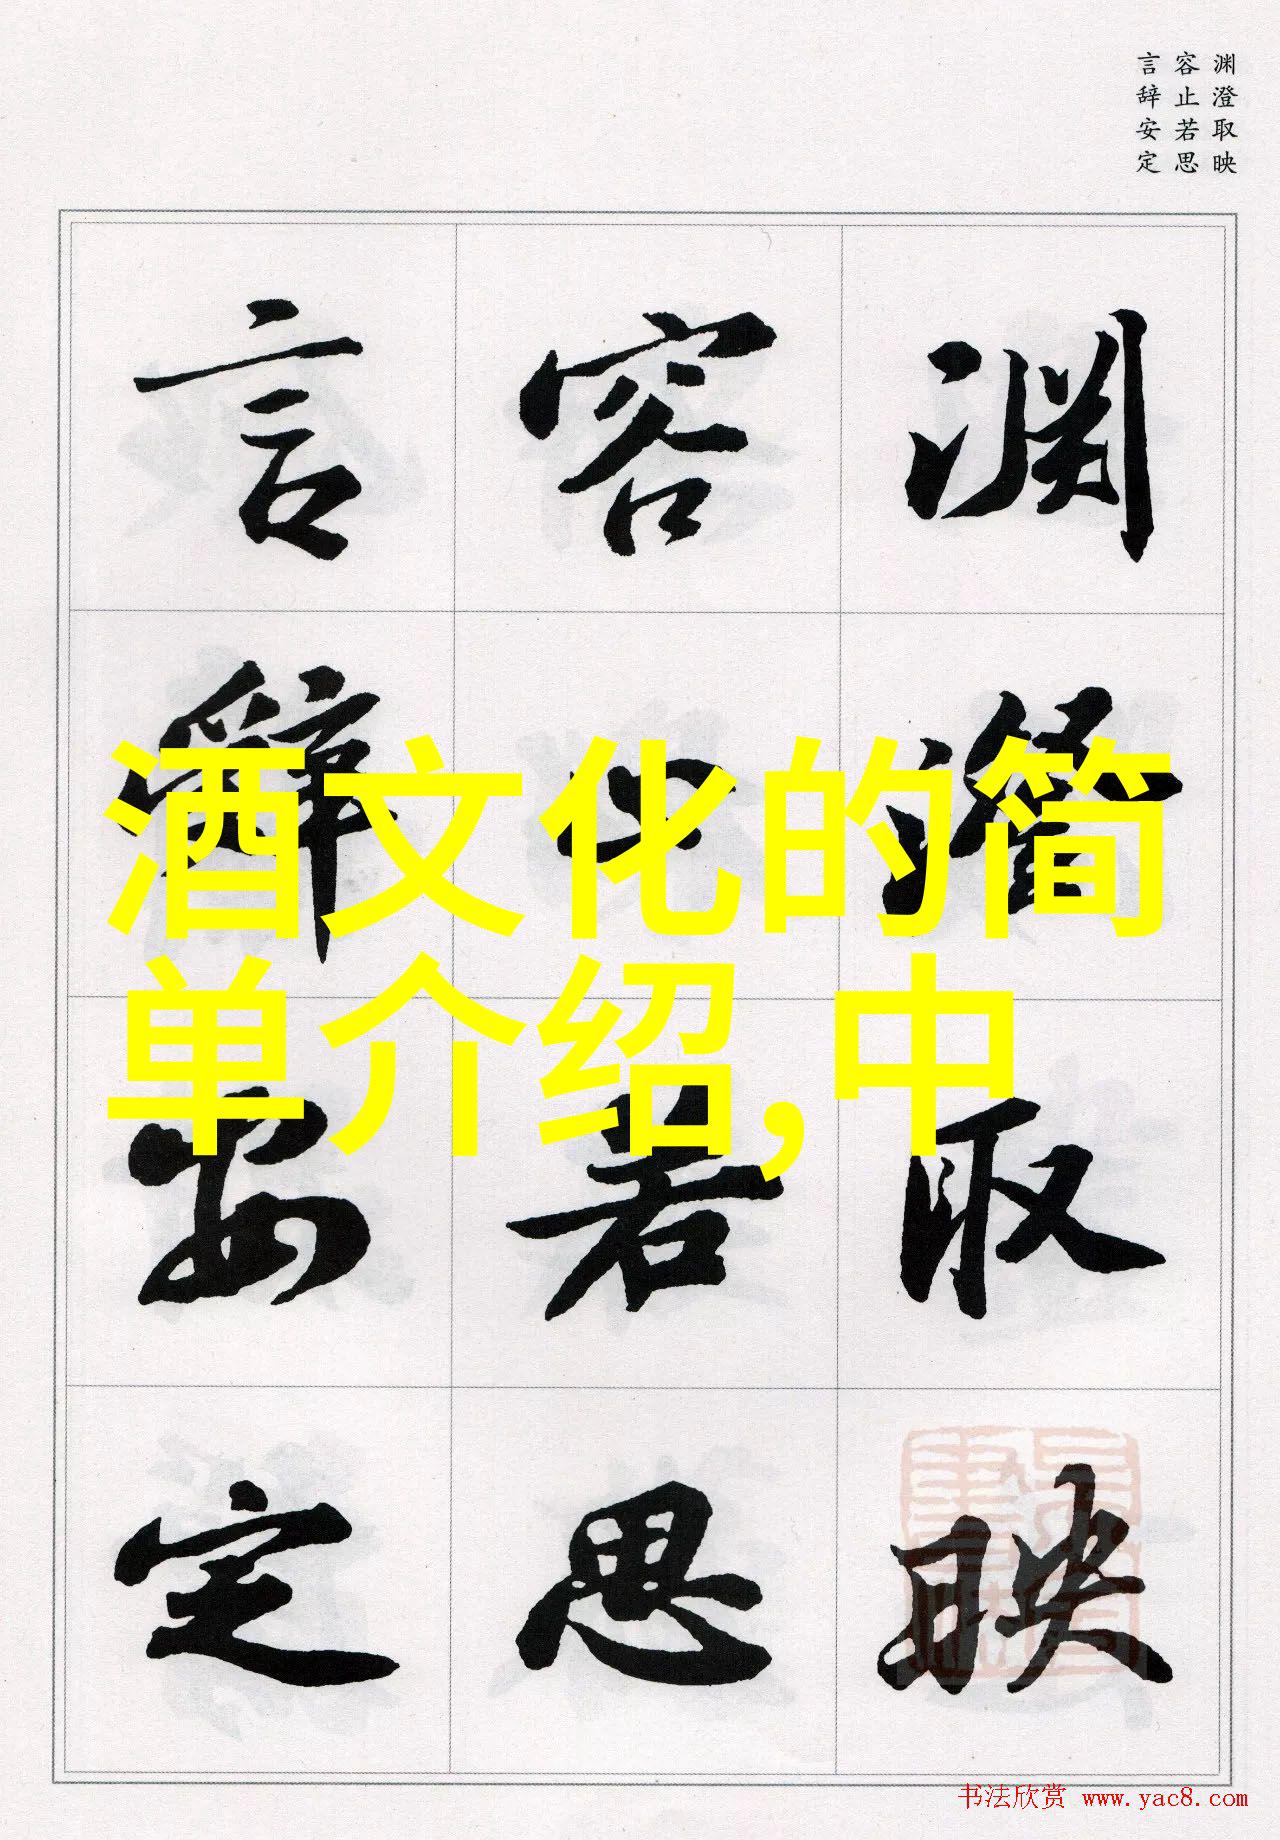 渊澄取映
容止若思
言辞安定
渊澄取映
容止若思
言辞安定
酒文化的简
单介绍,中
书法欣赏 www.yac8.com